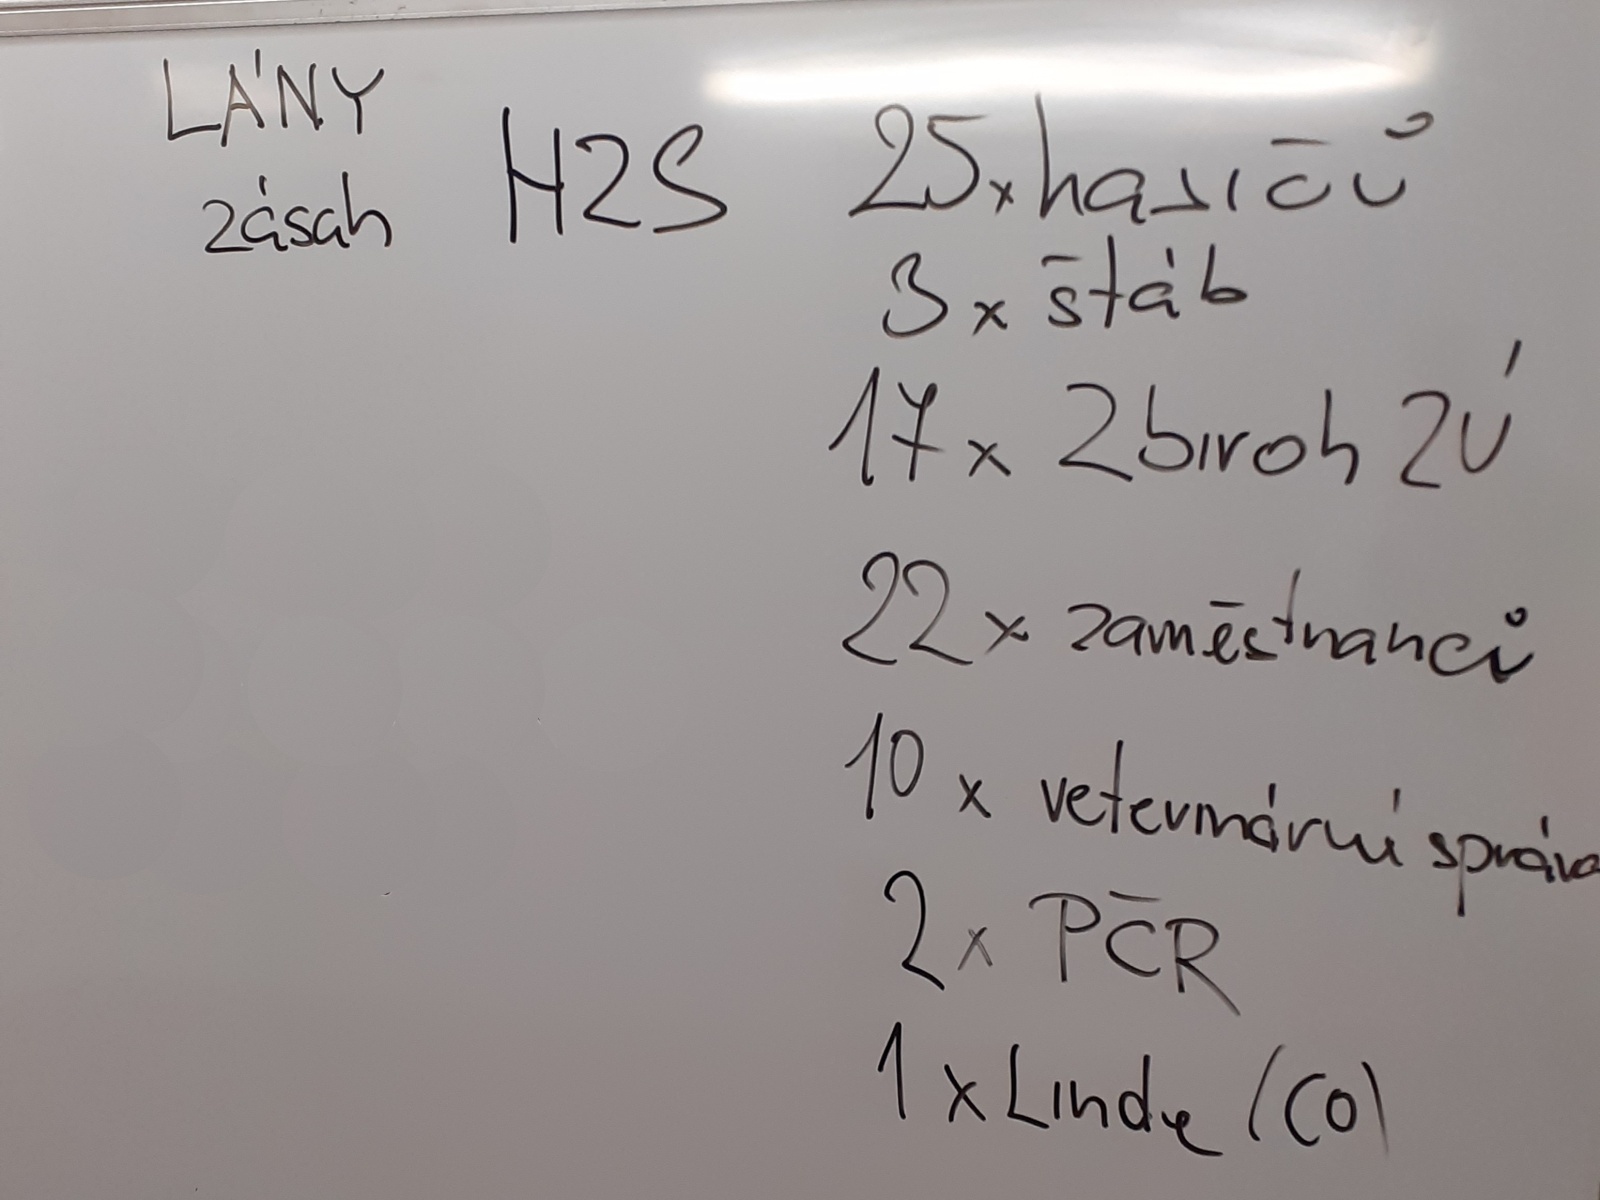 LÁNY
zásah
H2S
25x hasičů
3x štáb
17x Zbiroh ZÚ
22x zaměstnanců
10x veterinární správa
2x PČR
1x Linde (CO)